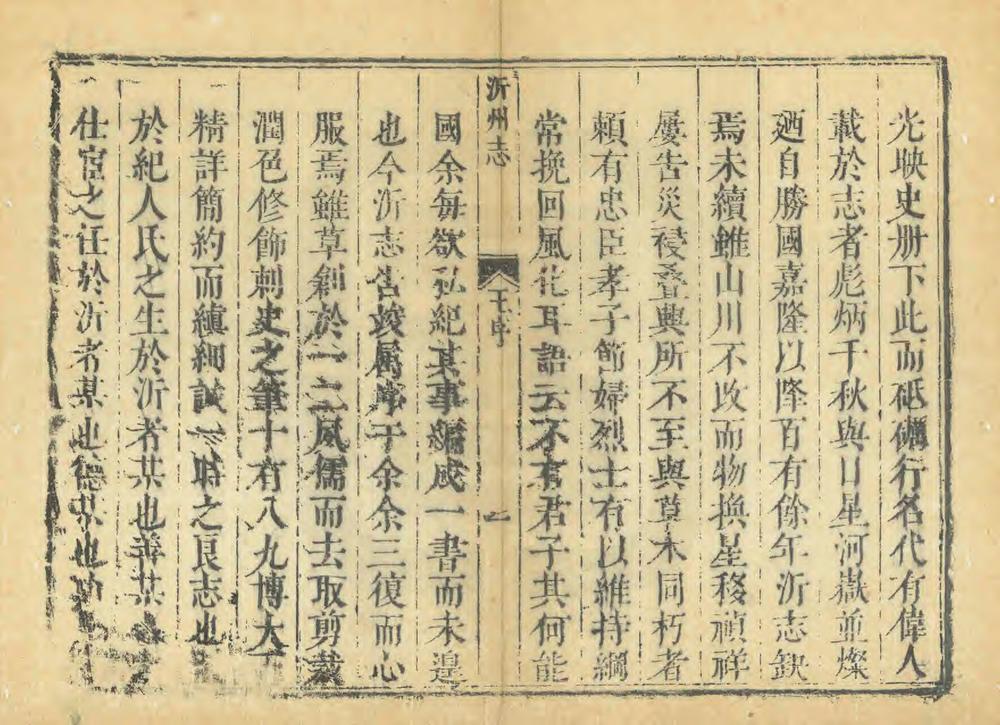 光映史册下此而砥礪行名代有偉人
載於志者彪炳千秋與日星河嶽並燦
廼自勝國嘉隆以降百有餘年沂志缺
焉未續雖山川不改而物換星移禎祥
屢告災祲叠興所不至與草木同朽者
賴有忠臣孝子節婦烈士有以維持綱
常挽回風化耳語云不有君子其何能
沂州志
王序
二
國余每欲私紀其事編成一書而未遑
也今沂志告竣属序于余余三復而心
服焉雖草創於一二夙儒而去取剪裁
潤色修飾刺史之筆十有八九博大
精詳簡約而縝細誠一時之良志也
於紀人氏之生於沂者某也善某
仕宦之任於沂者某也德某也功